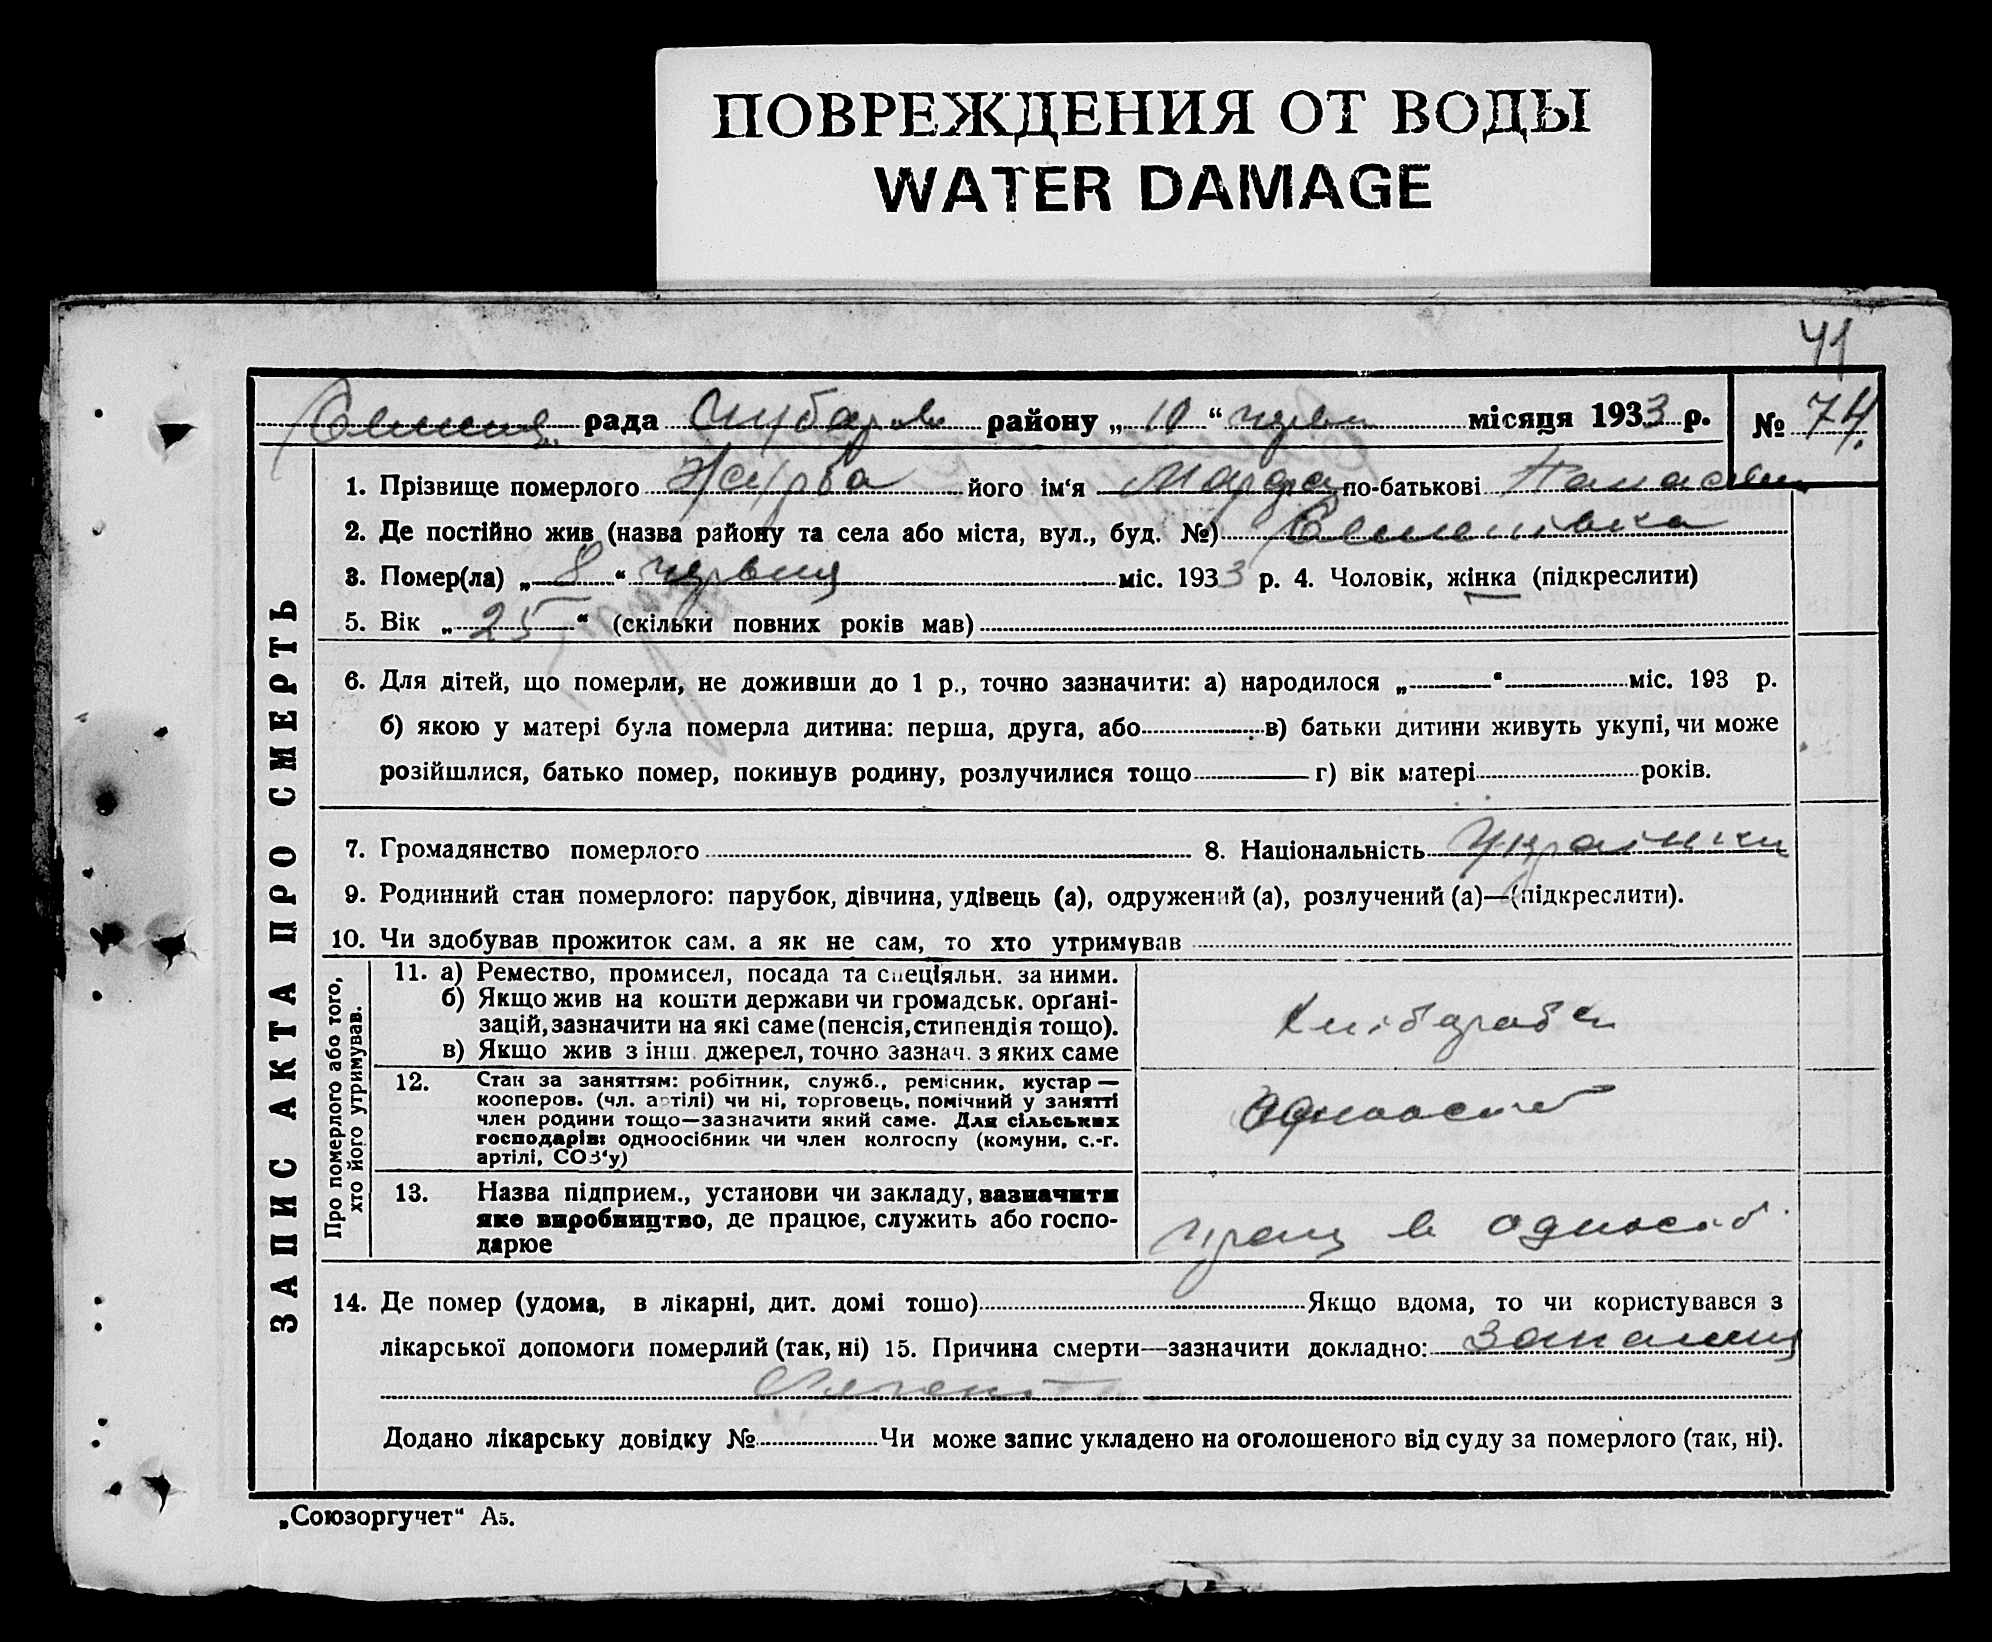 ПОВРЕЖДЕНИЯ ОТ ВОДЫ
WATER DAMAGE
41
рада району „ 10 “ черв місяця 1933 р. № 74
ЗАПИС АКТА ПРО СМЕРТЬ
1. Прізвище померлого Журба його ім‘я Марфа по-батькові
2. Де постійно жив (назва району та села або міста, вул., буд. №) Семенівка
3. Помер(ла) „ 8 “ червня міс. 1933 р. 4. Чоловік, жінка (підкреслити)
5. Вік „ 25 “ (скільки повних років мав)
6. Для дітей, що померли, не доживши до 1 р., точно зазначити: а) народилося „ “ міс. 193 р.
б) якою у матері була померла дитина: перша, друга, або в) батьки дитини живуть укупі, чи може
розійшлися, батько помер, покинув родину, розлучилися тощо г) вік матері років.
7. Громадянство померлого 8. Національність Українка
9. Родинний стан померлого: парубок, дівчина, удівець (а), одружений (а), розлучений (а)—(підкреслити).
10. Чи здобував прожиток сам, а як не сам, то хто утримував
Про померлого або того,
хто його утримував.
11. а) Ремество, промисел, посада та спеціяльн. за ними.
б) Якщо жив на кошти держави чи громадськ. орґані-
зацій, зазначити на які саме (пенсія, стипендія тощо).
в) Якщо жив з інш. джерел, точно зазнач. з яких саме
Хлібаробка
12. Стан за заняттям: робітник, служб., ремісник, кустар —
кооперов. (чл. артілі) чи ні, торговець, помічний у занятті
член родини тощо—зазначити який саме. Для сільських
господарів: одноосібник чи член колгоспу (комуни, с.-г.
артілі, СОЗ‘у)
13. Назва підприєм., установи чи закладу, зазначити
яке виробництво, де працює, служить або госпо-
дарює
прац в одноосіб
14. Де помер (удома, в лікарні, дит. домі тошо) Якщо вдома, то чи користувався з
лікарської допомоги померлий (так, ні) 15. Причина смерти—зазначити докладно: Запалення
Легень
Додано лікарську довідку № Чи може запис укладено на оголошеного від суду за померлого (так, ні).
„Союзоргучет“ А5.